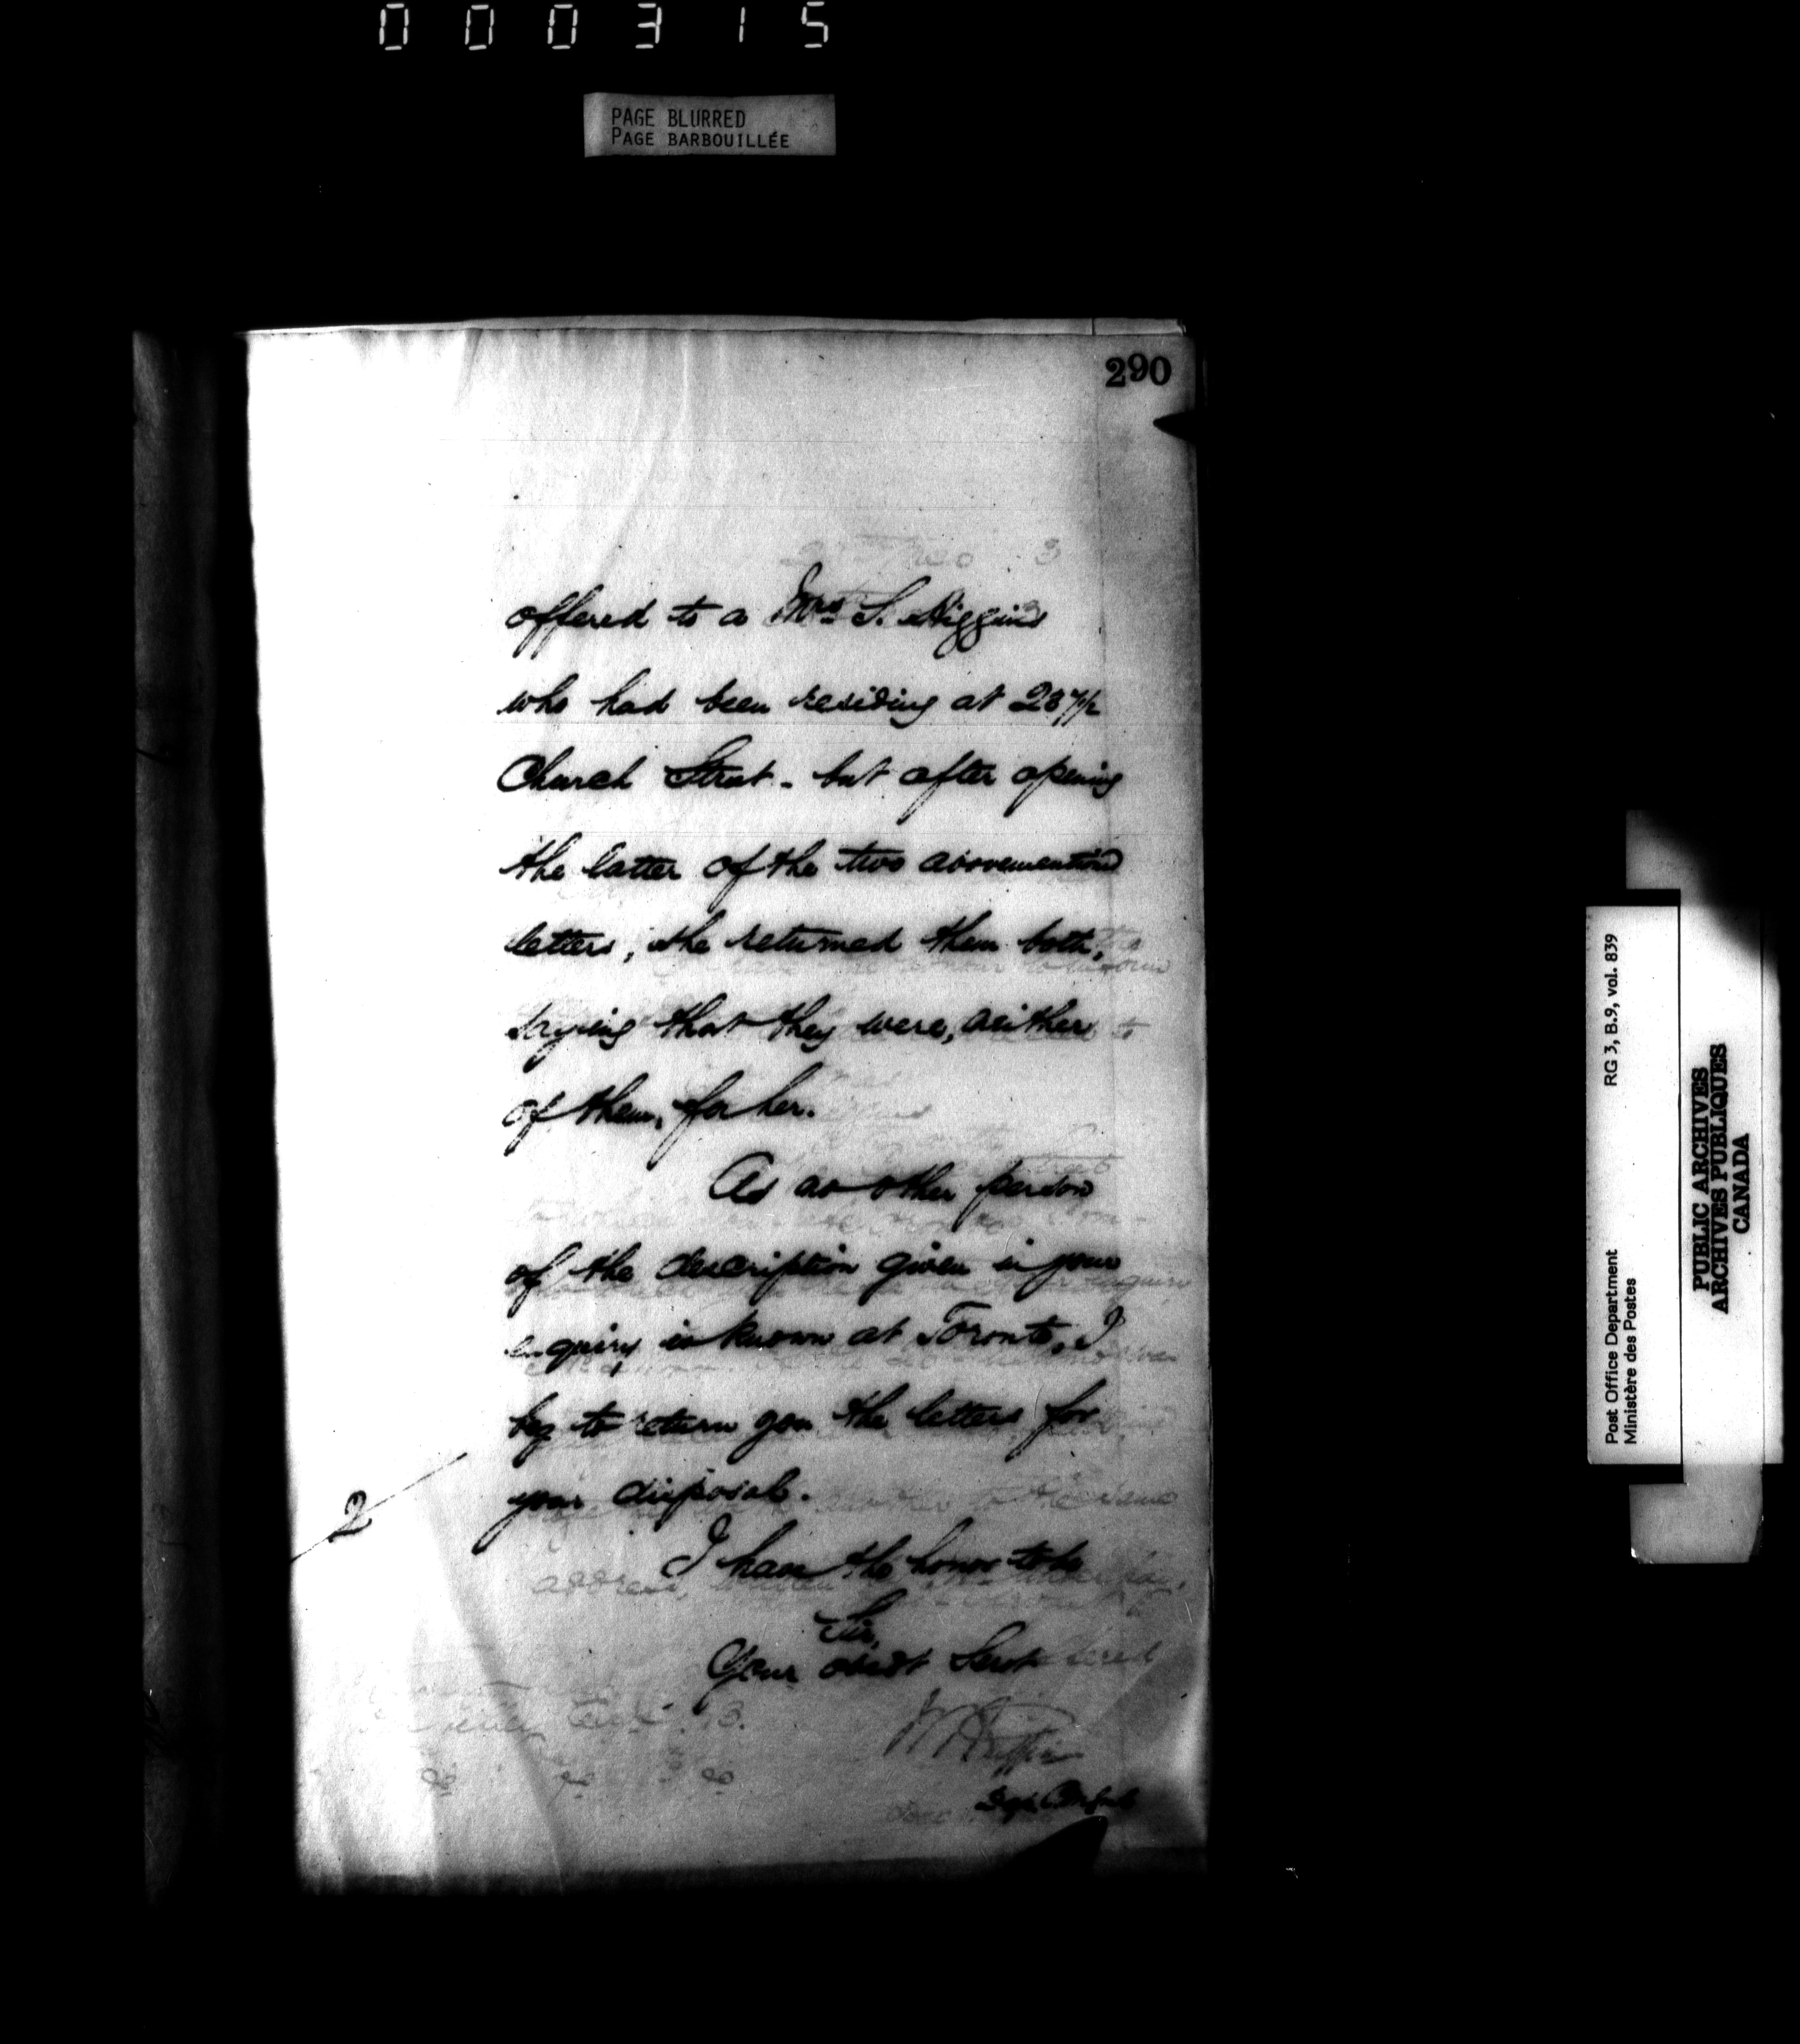 000315
PAGE BLURRED
PAGE BARBOUILLÉE
290
offered to a Mrs. S. Higgins
who had been residing at 287½
Church Street - but after opening
the latter of the two abovemention'd
letters, she returned them both,
saying that they were, neither
of them, for her.
As no other person
of the description given in your
enquiry is known at Toronto, I
beg to return you the letters for
your disposal.
2
I have the honor to be
Sir,
Your obedt Servt
W H Griffin
RG 3, B.9, vol. 839
Post Office Department
Ministère des Postes
PUBLIC ARCHIVES
ARCHIVES PUBLIQUES
CANADA